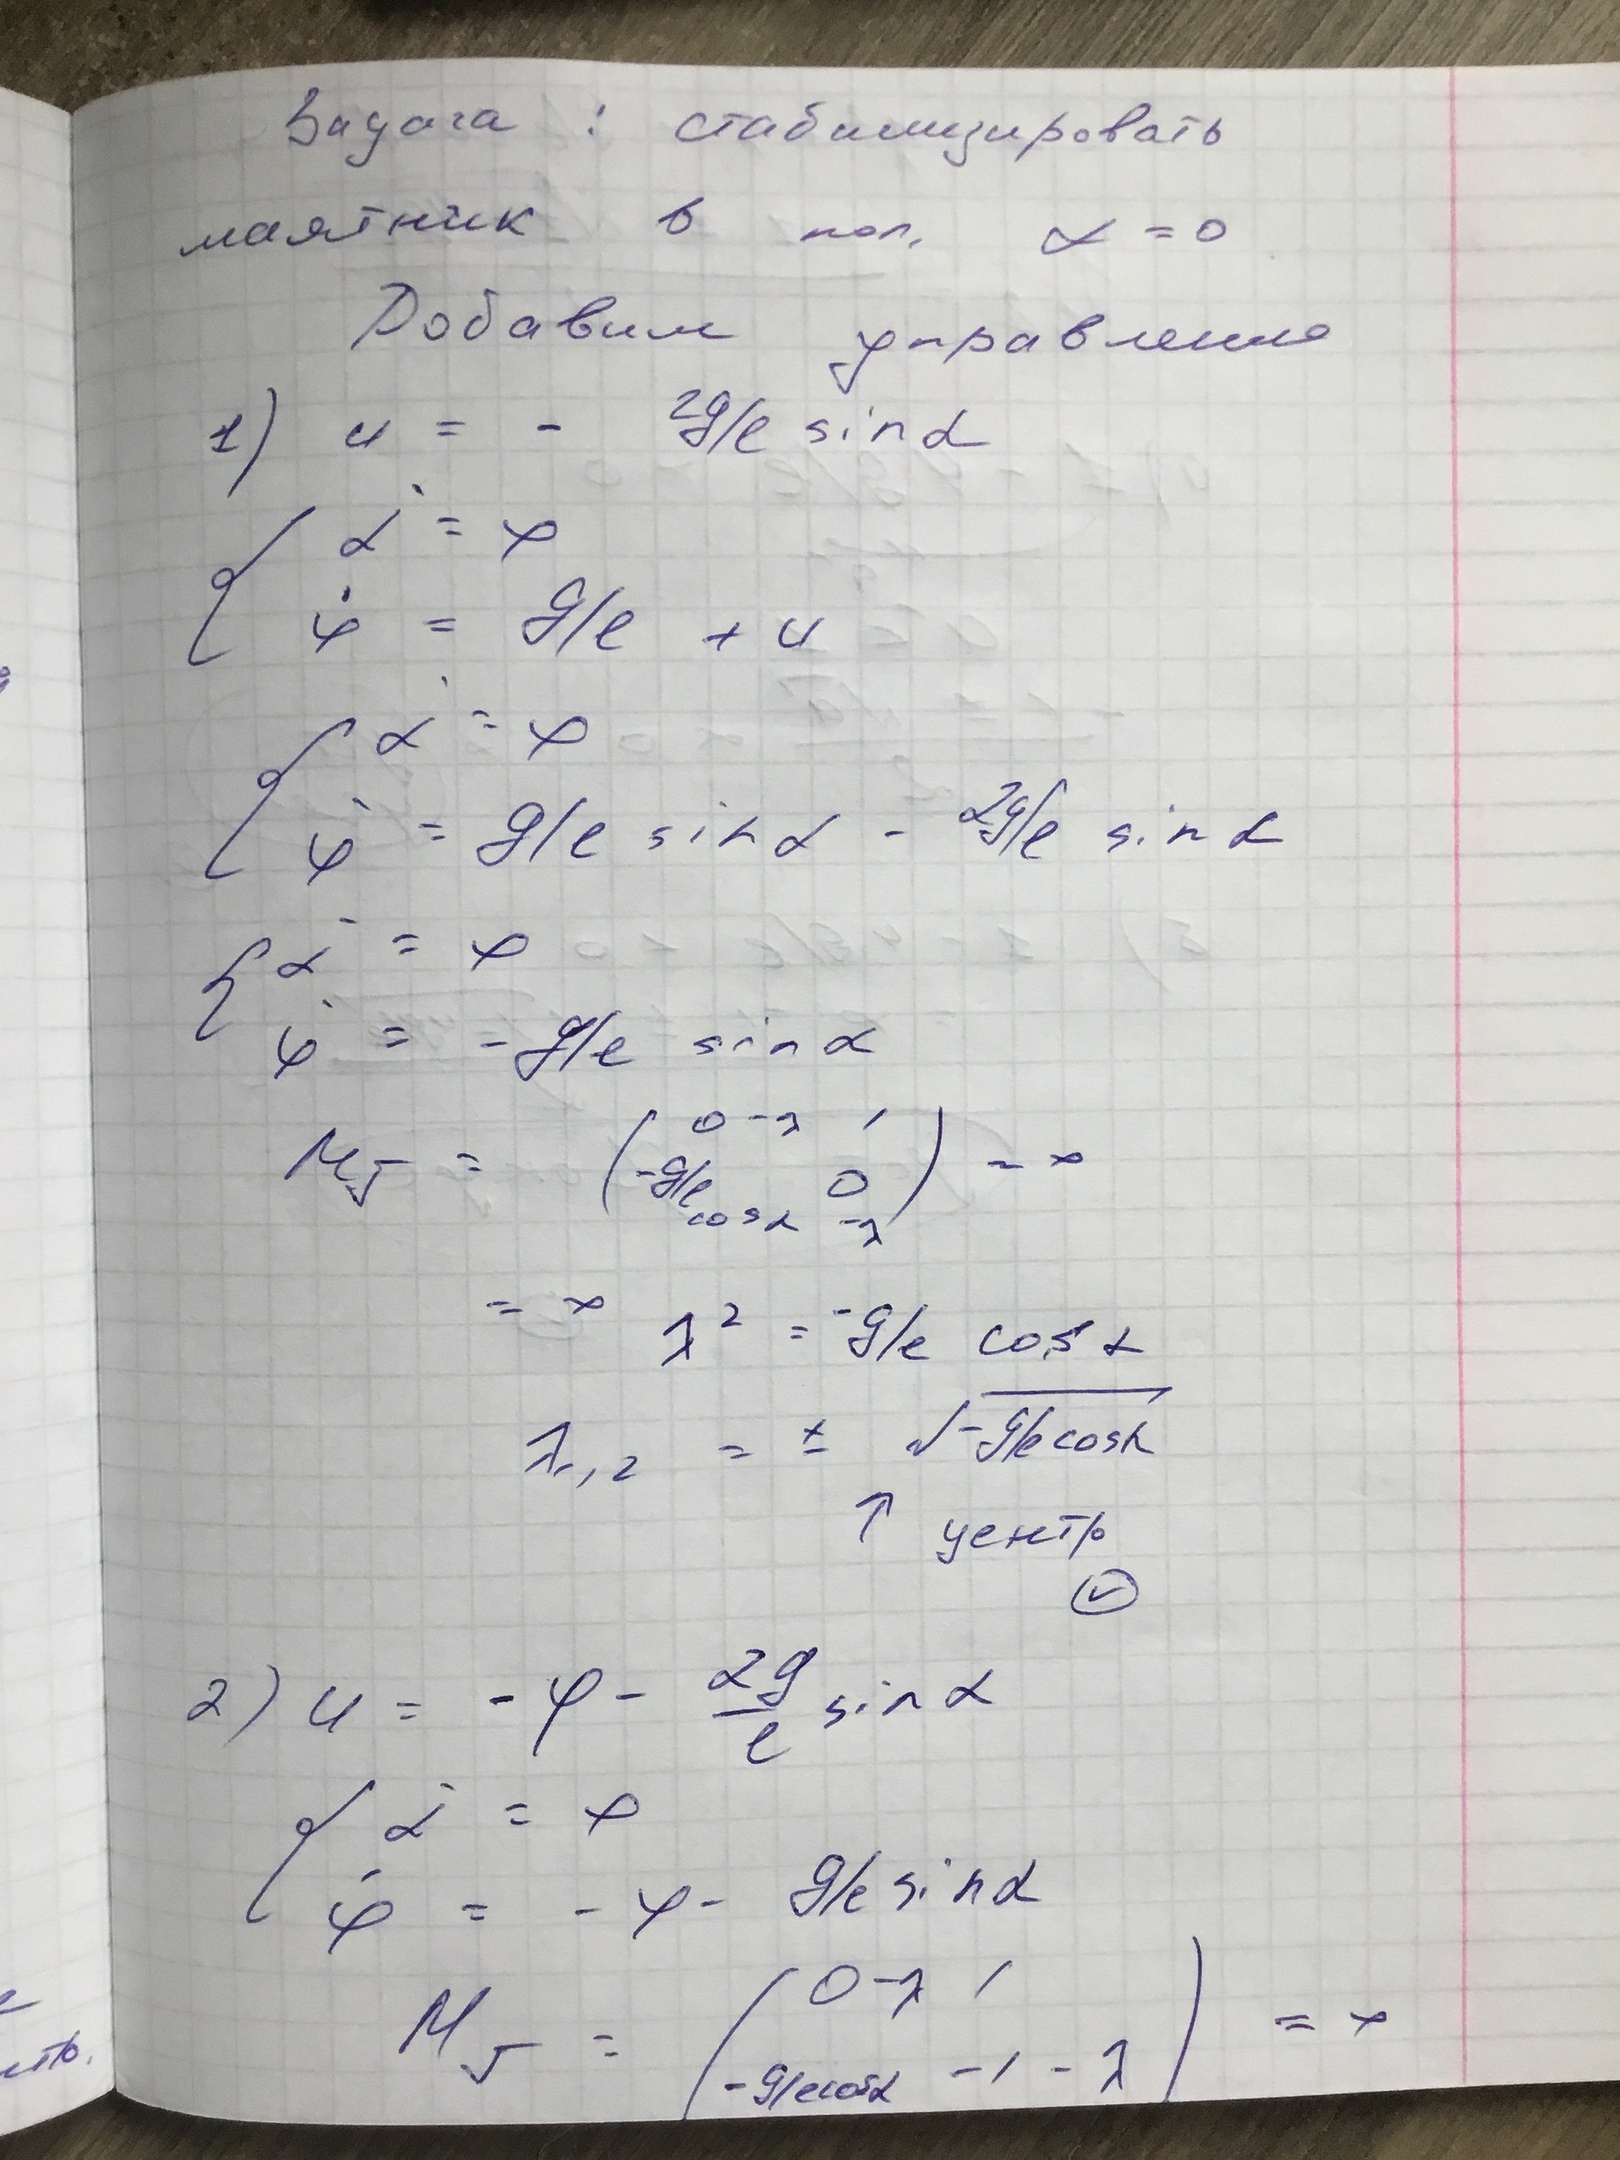 Задача : стабилизировать
маятник в пол. α = 0
Добавим управление
1) u = - 2g/l sinα
α̇ = φ
φ̇ = g/l + u
α̇ = φ
φ̇ = g/l sinα - 2g/l sinα
α̇ = φ
φ̇ = -g/l sinα
M_J = ( 0-λ 1
-g/l cosα 0 -λ ) =>
=> λ² = -g/l cosα
λ₁,₂ = ± √-g/l cosα
↑ центр
✓
2) u = -φ - 2g/l sinα
α̇ = φ
φ̇ = -φ - g/l sinα
M_J = ( 0-λ 1
-g/l cosα -1-λ ) =>